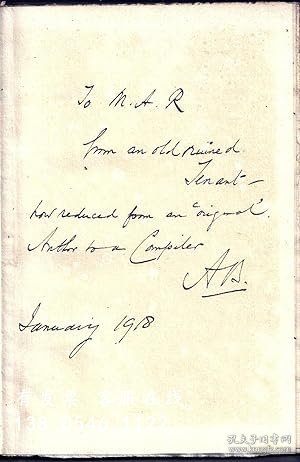 To M. A. R
from an old ruined
Tenant —
now reduced from an "original"
Author to a Compiler
A B.
January 1918
孔夫子旧书网